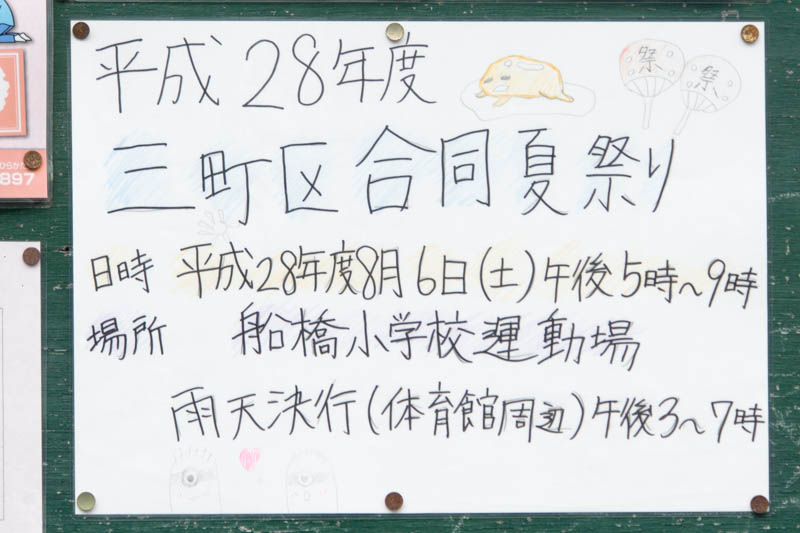 平成28年度
祭
祭
三町区合同夏祭り
日時 平成28年度8月6日(土)午後5時~9時
場所 船橋小学校運動場
雨天決行(体育館周辺)午後3~7時
897